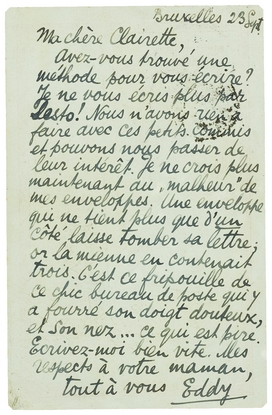 Bruxelles 23 Sept
Ma chère Clairette,
Avez-vous trouvé une
méthode pour vous écrire?
Je ne vous écris plus par
Resto! Nous n'avons rien à
faire avec ces petits commis
et pouvons nous passer de
leur intérêt. Je ne crois plus
maintenant au "malheur" de
mes enveloppes. Une enveloppe
qui ne tient plus que d'un
côté laisse tomber sa lettre;
or la mienne en contenait
trois. C'est ce fripouille de
ce chic bureau de poste qui y
a fourré son doigt douteux,
et son nez... ce qui est pire.
Ecrivez-moi bien vite. Mes
respects à votre maman,
tout à vous Eddy